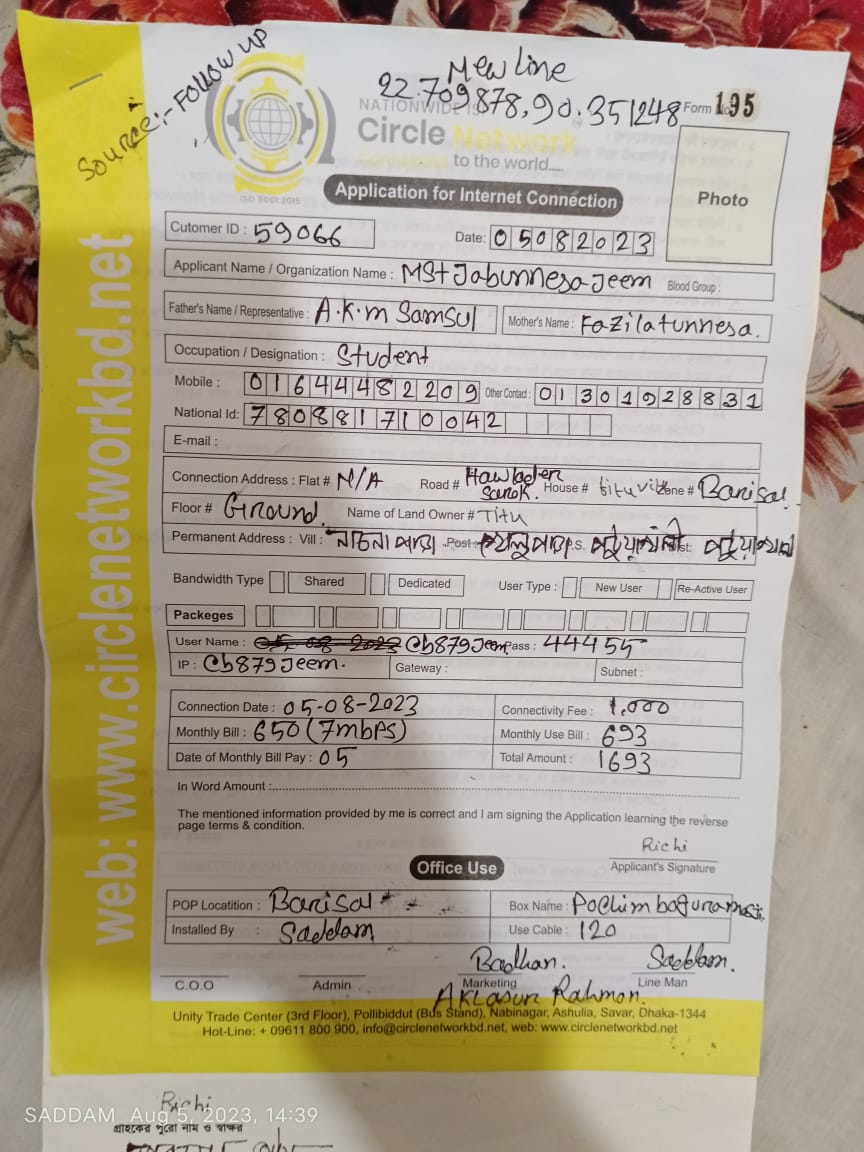 Source:- FOLLOW UP
New Line
22.709878,90.351248
Form No. 195
NATIONWIDE ISP
Circle Network
to the world.....
ISO 9001:2015
Application for Internet Connection
Photo
Cutomer ID : 59066
Date: 05082023
Applicant Name / Organization Name : MSt Jabunnesa Jeem Blood Group :
Father's Name / Representative : A.K.m Samsul Mother's Name : Fazilatunnesa.
Occupation / Designation : Student
Mobile : 01644482209 Other Contact : 01301928831
National Id: 780881710042
E-mail :
Connection Address : Flat # N/A Road # Hawlader Sarok. House # Zone # Barisal
Floor # Ground Name of Land Owner # Titu
Permanent Address : Vill : Post P.S. Dist:
Bandwidth Type Shared Dedicated User Type : New User Re-Active User
Packeges
User Name : 05-08-2023 Cb879Jeem Pass : 44455
IP : Cb879Jeem. Gateway : Subnet :
Connection Date : 05-08-2023 Connectivity Fee : 1,000
Monthly Bill : 650 (7mbps) Monthly Use Bill : 693
Date of Monthly Bill Pay : 05 Total Amount : 1693
In Word Amount :
The mentioned information provided by me is correct and I am signing the Application learning the reverse
page terms & condition.
Richi
Applicant's Signature
Office Use
POP Locatition : Barisal Box Name :
Installed By : Saddam Use Cable : 120
Badhan. Saddam.
C.O.O Admin Marketing Line Man
Rahman.
Unity Trade Center (3rd Floor), Pollibiddut (Bus Stand), Nabinagar, Ashulia, Savar, Dhaka-1344
Hot-Line: + 09611 800 900, info@circlenetworkbd.net, web: www.circlenetworkbd.net
web: www.circlenetworkbd.net
Richi
SADDAM Aug 5, 2023, 14:39
গ্রাহকের পুরো নাম ও স্বাক্ষর